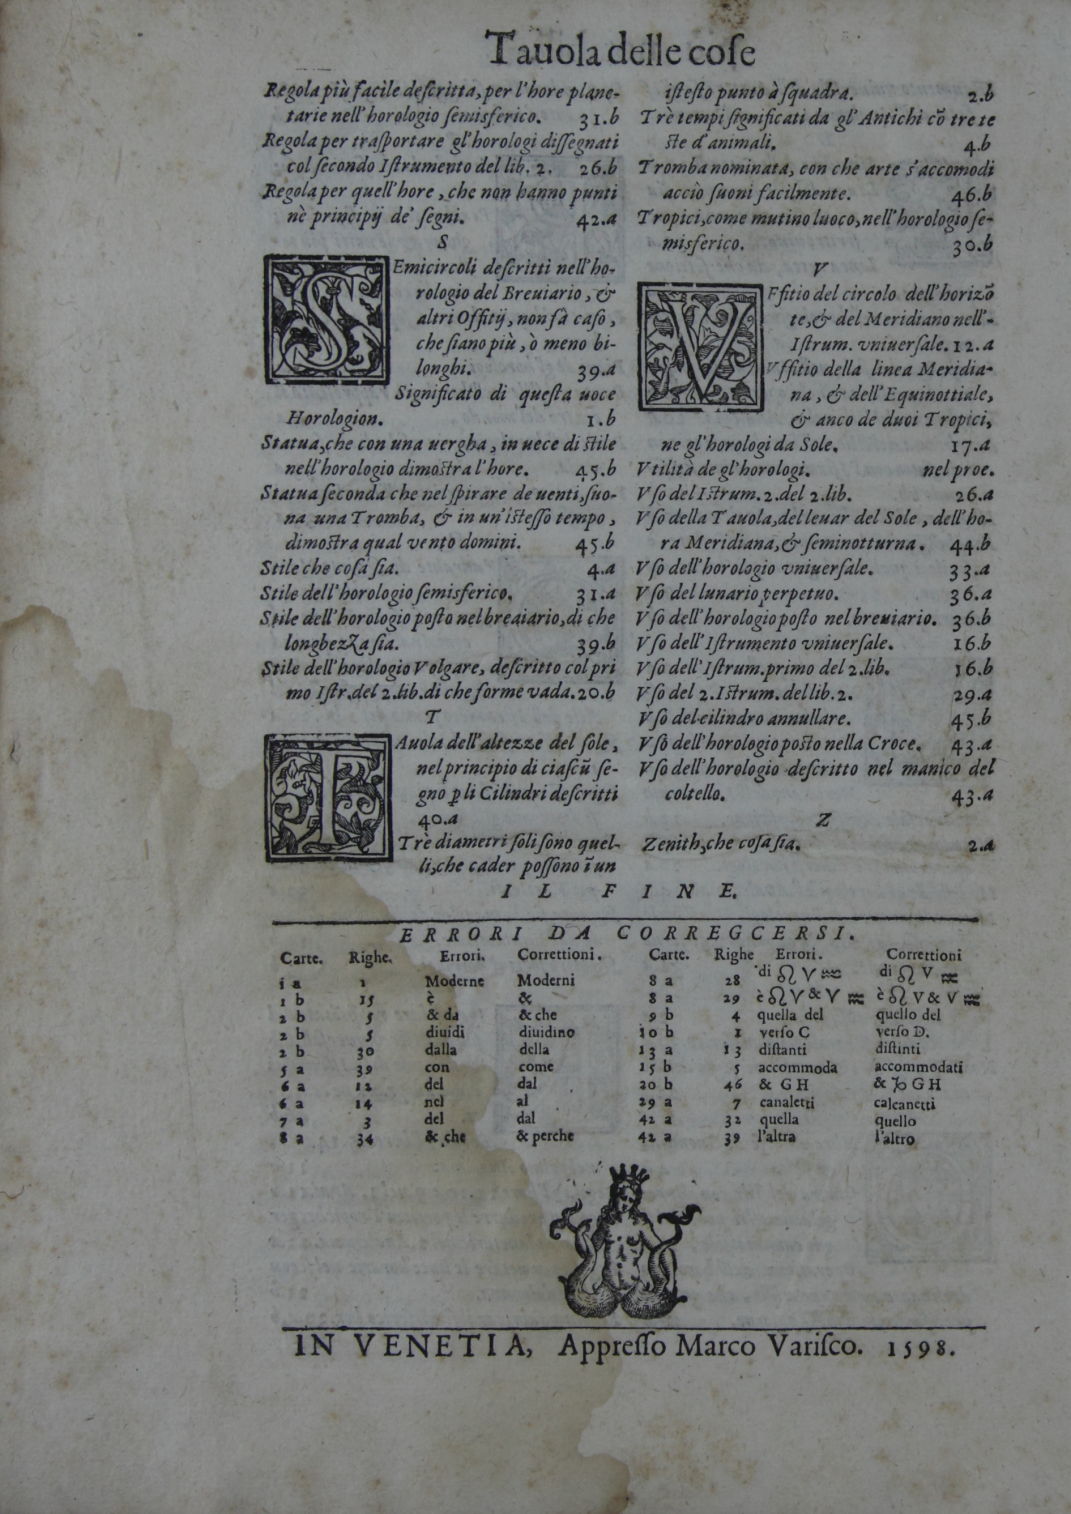 Tauola delle coſe
Regola più facile deſcritta, per l'hore plane-
tarie nell'horologio ſemisferico. 31.b
Regola per traſportare gl'horologi diſſegnati
col ſecondo Iſtrumento del lib. 2. 26.b
Regola per quell'hore, che non hanno punti
nè principij de' ſegni. 42.a
S
SEmicircoli deſcritti nell'ho-
rologio del Breuiario, &
altri Offitij, non fà caſo,
che ſiano più, ò meno bi-
longhi. 39.a
Significato di queſta uoce
Horologion. 1.b
Statua, che con una uergha, in uece di ſtile
nell'horologio dimoſtra l'hore. 45.b
Statua ſeconda che nel ſpirare de uenti, ſuo-
na una Tromba, & in un'iſteſſo tempo,
dimoſtra qual vento domini. 45.b
Stile che coſa ſia. 4.a
Stile dell'horologio ſemisferico. 31.a
Stile dell'horologio poſto nel breuiario, di che
longhezza ſia. 39.b
Stile dell'horologio Volgare, deſcritto col pri
mo Iſtr. del 2. lib. di che forme vada. 20.b
T
TAuola dell'altezze del ſole,
nel principio di ciaſcũ ſe-
gno ꝑ li Cilindri deſcritti
40.a
Trè diametri ſoli ſono quel-
li, che cader poſſono ĩ un
iſteſto punto à ſquadra. 2.b
Trè tempi ſignificati da gl'Antichi cõ tre te
ſte d'animali. 4.b
Tromba nominata, con che arte s'accomodi
acciò ſuoni facilmente. 46.b
Tropici, come mutino luoco, nell'horologio ſe-
misferico. 30.b
V
VFfitio del circolo dell'horizõ
te, & del Meridiano nell'-
Iſtrum. vniuerſale. 12.a
Vffitio della linea Meridia-
na, & dell'Equinottiale,
& anco de duoi Tropici,
ne gl'horologi da Sole. 17.a
Vtilità de gl'horologi. nel proe.
Vſo del Iſtrum. 2. del 2. lib. 26.a
Vſo della Tauola, del leuar del Sole, dell'ho-
ra Meridiana, & ſeminotturna. 44.b
Vſo dell'horologio vniuerſale. 33.a
Vſo del lunario perpetuo. 36.a
Vſo dell'horologio poſto nel breuiario. 36.b
Vſo dell'Iſtrumento vniuerſale. 16.b
Vſo dell'Iſtrum. primo del 2. lib. 16.b
Vſo del 2. Iſtrum. del lib. 2. 29.a
Vſo del cilindro annullare. 45.b
Vſo dell'horologio poſto nella Croce. 43.a
Vſo dell'horologio deſcritto nel manico del
coltello. 43.a
Z
Zenith, che coſa ſia. 2.a
IL FINE.
ERRORI DA CORREGCERSI.
Carte. Righe. Errori. Correttioni. Carte. Righe Errori. Correttioni
1 a 1 Moderne Moderni 8 a 28 di ♌ V ♒ di ♌ V ♒
1 b 15 è & 8 a 29 è ♌ V & V ♒ è ♌ V & V ♒
2 b 5 & da & che 9 b 4 quella del quello del
2 b 5 diuidi diuidino 10 b 1 verſo C verſo D.
2 b 30 dalla della 13 a 13 diſtanti diſtinti
5 a 39 con come 15 b 5 accommoda accommodati
6 a 12 del dal 20 b 46 & G H & ♑ G H
6 a 14 nel al 29 a 7 canaletti calcanetti
7 a 3 del dal 42 a 32 quella quello
8 a 34 & che & perche 42 a 39 l'altra l'altro
IN VENETIA, Appreſſo Marco Variſco. 1598.